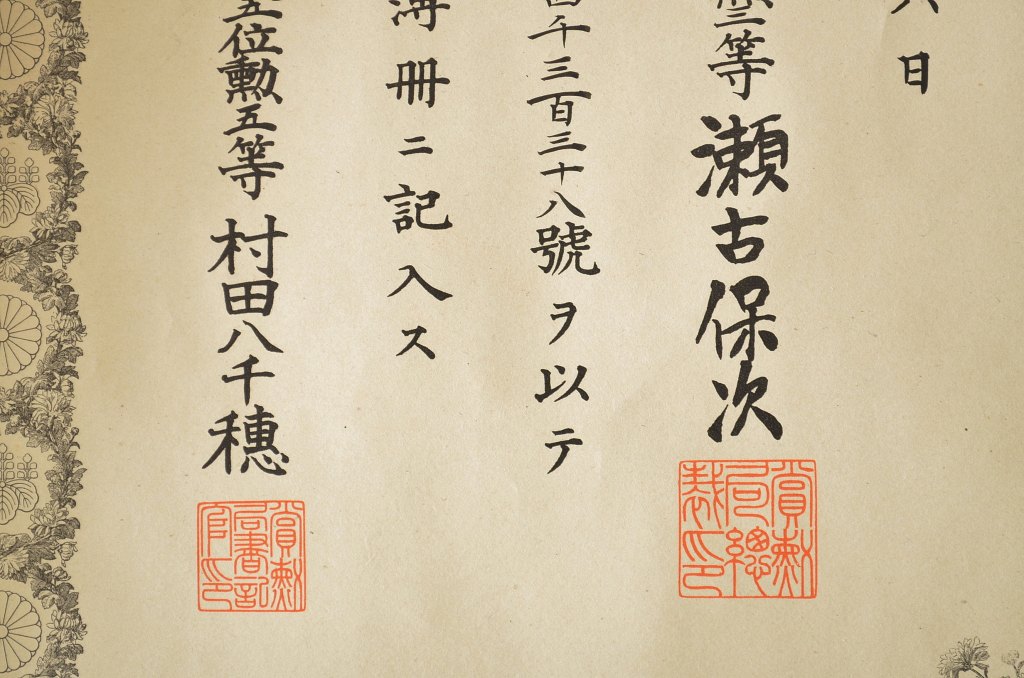 日
等瀬古保次
千三百三十八號ヲ以テ
簿冊ニ記入ス
五位勲五等村田八千穗
賞勲局總裁印
賞勲局書記官印